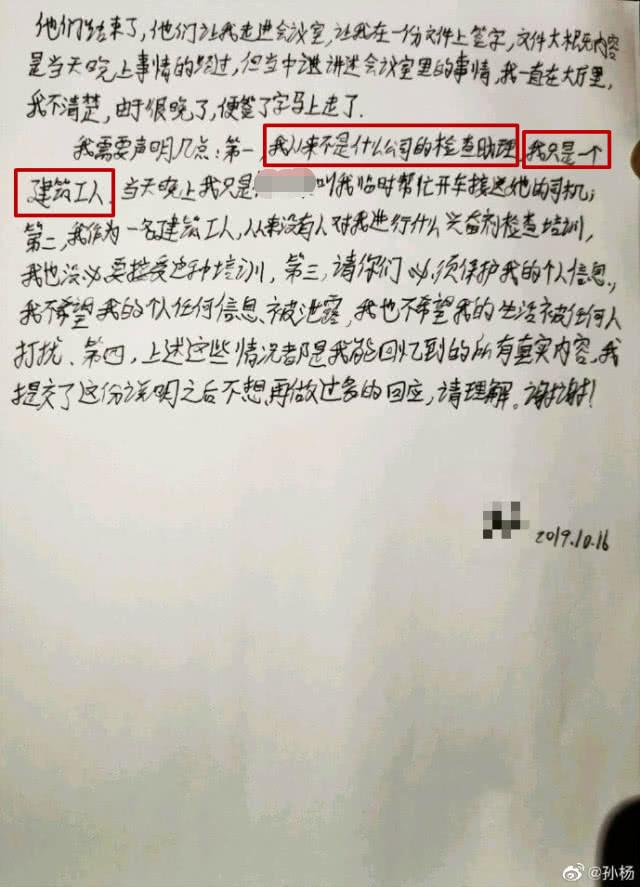 他们结束了，他们让我走进会议室，让我在一份文件上签字，文件大概内容
是当天晚上事情的经过，但当中讲述会议室里的事情，我一直在大厅里，
我不清楚，由于很晚了，便签了字马上走了．
我需要声明几点：第一，我从来不是什么公司的检查助理，我只是一个
建筑工人，当天晚上我只是 叫我临时帮忙开车接送她的司机；
第二，我作为一名建筑工人，从来没有人对我进行什么兴奋剂检查培训，
我也没必要接受这种培训，第三，请你们必须保护我的个人信息，
我不希望我的个人任何信息被泄露，我也不希望我的生活被任何人
打扰、第四，上述这些情况都是我能回忆到的所有真实内容，我
提交了这份说明之后不想再做过多的回应，请理解。谢谢！
2019.10.16
@孙杨